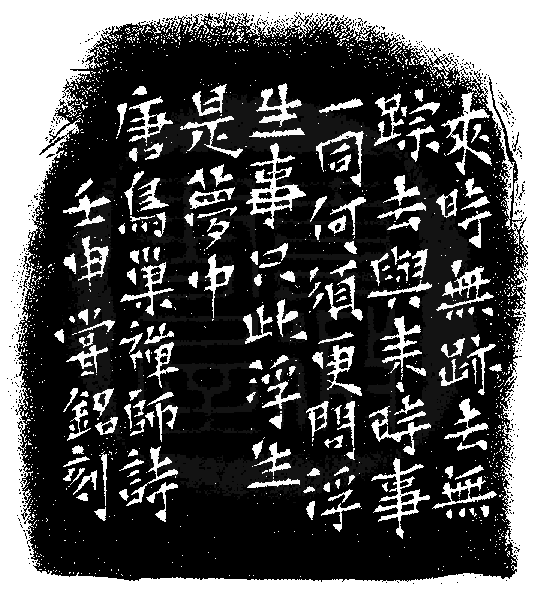 來時無跡去無
踪去與来時事
一同何須更問浮
生事只此浮生
是夢中
唐鳥巢禪師詩
壬申嘗銘刻